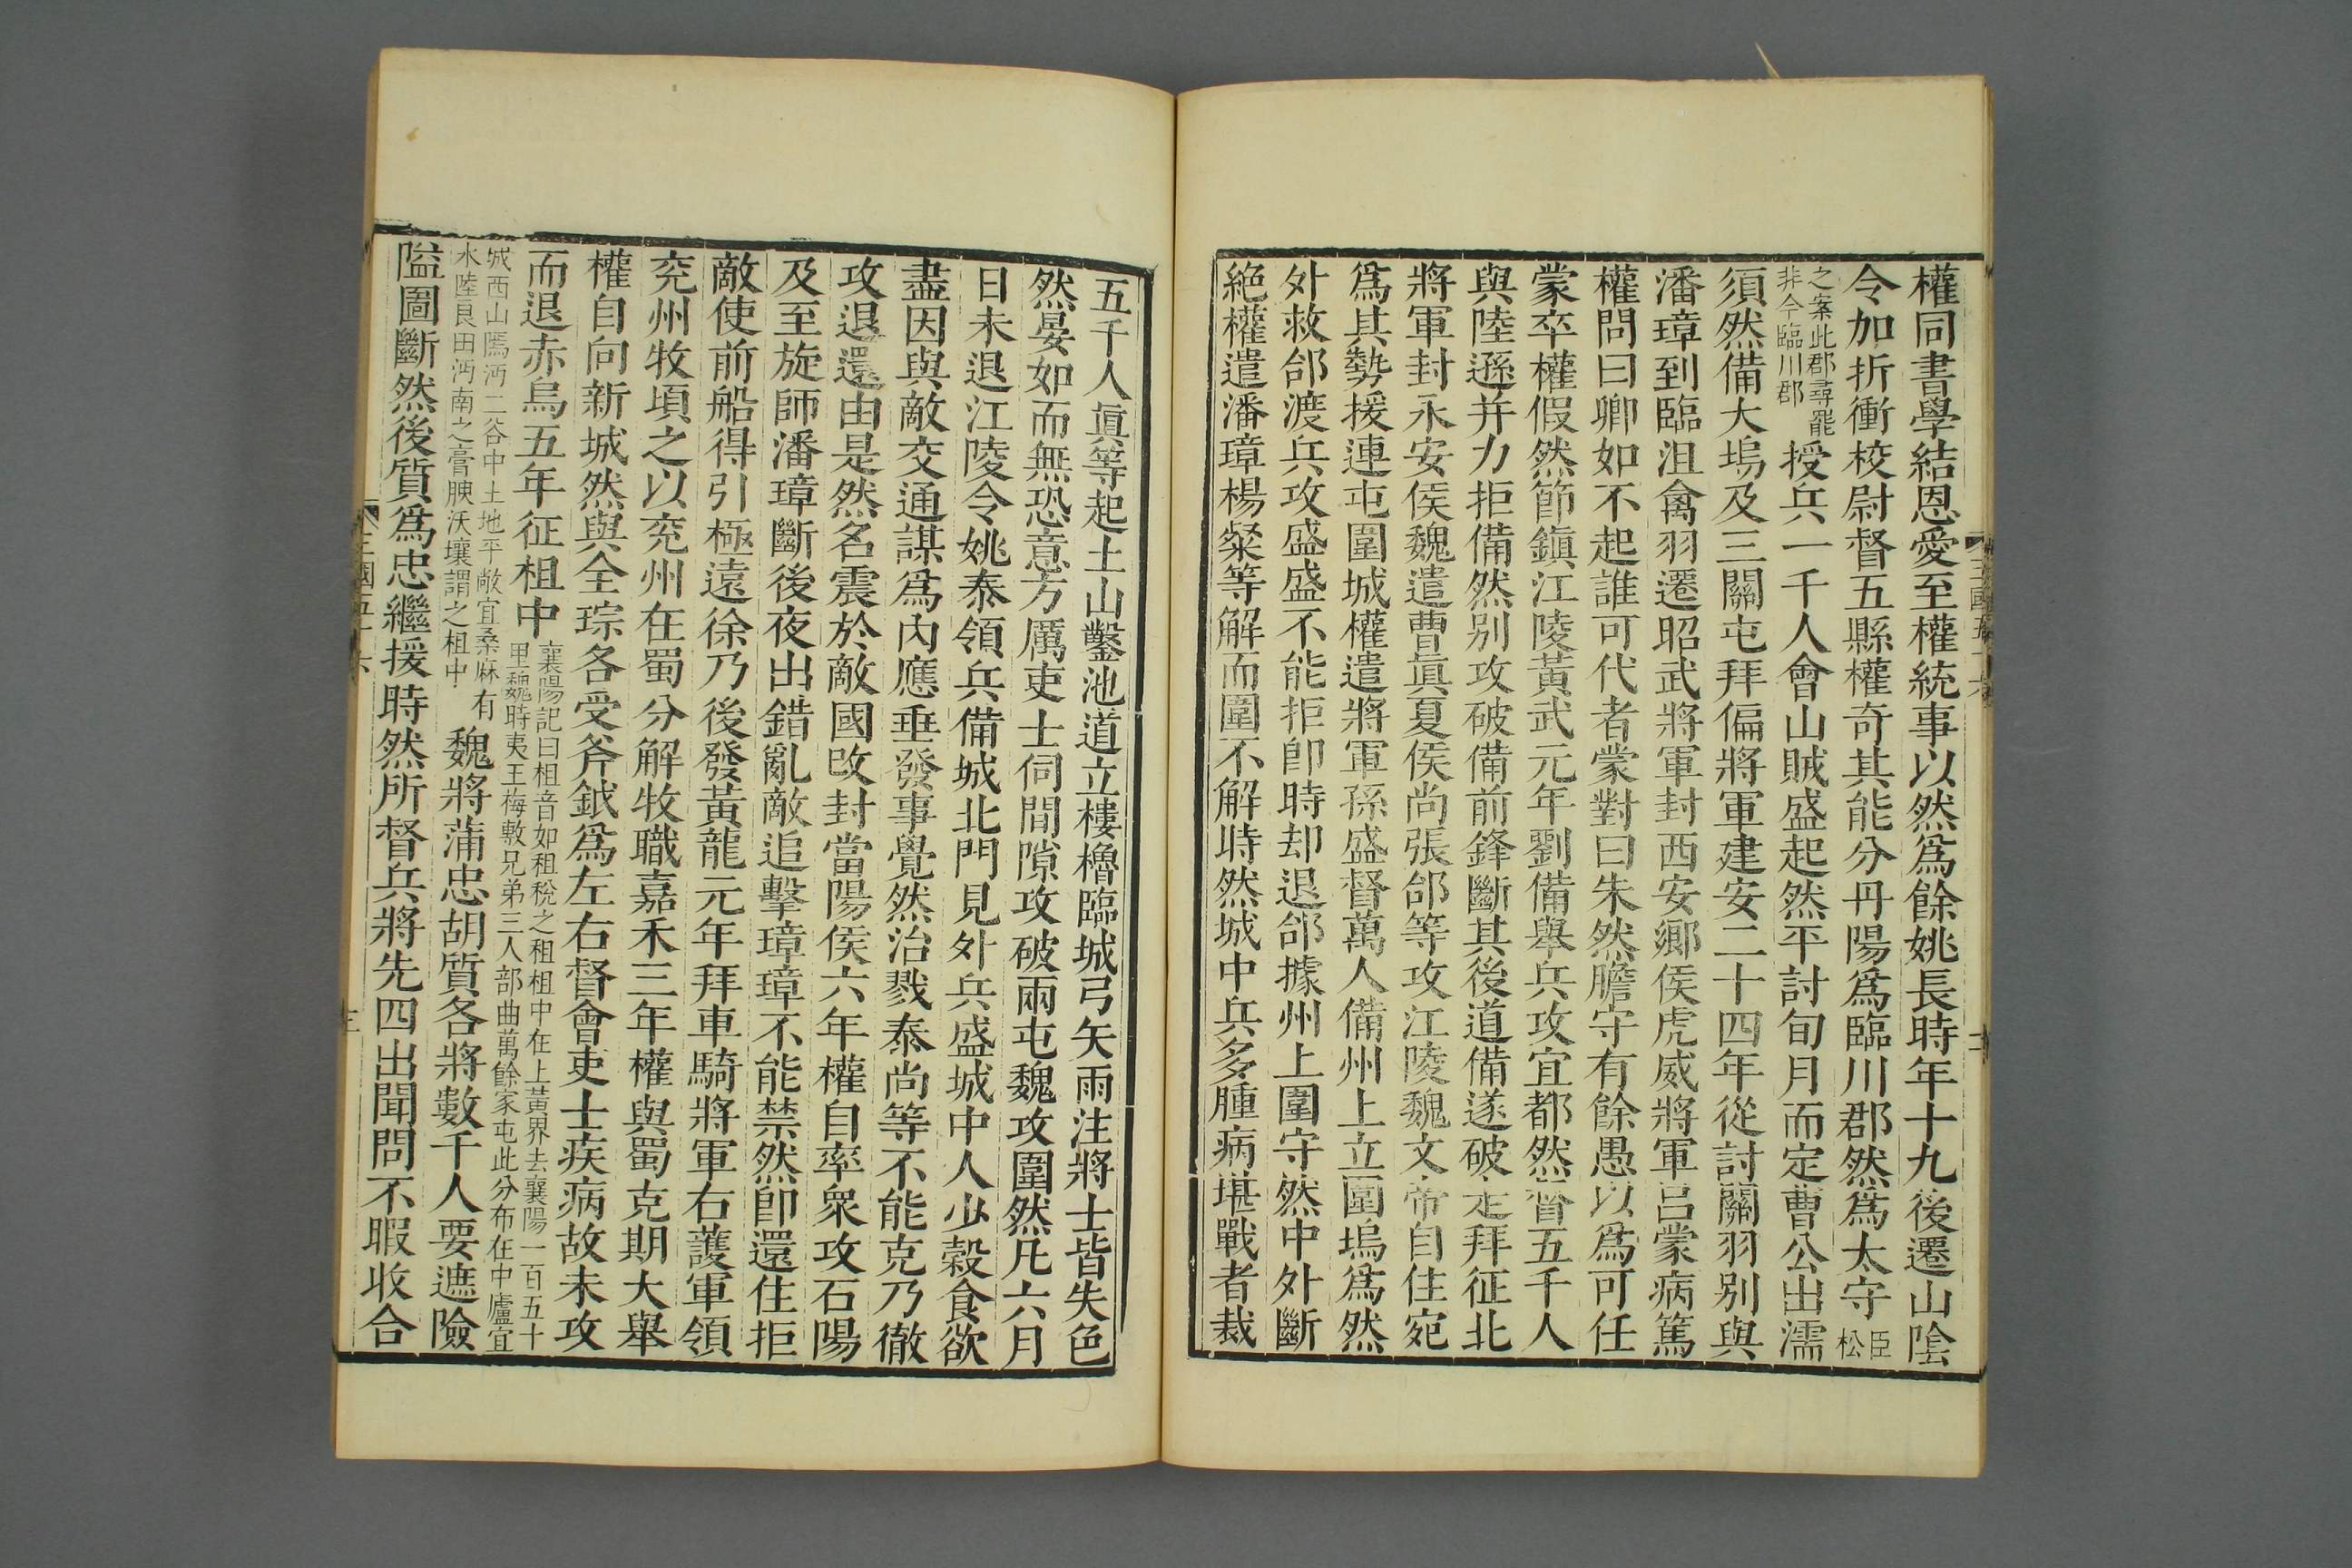 權同書學結恩愛至權統事以然爲餘姚長時年十九後遷山陰
令加折衝校尉督五縣權奇其能分丹陽爲臨川郡然爲太守臣松
之案此郡尋罷非今臨川郡授兵二千人會山賊盛起然平討旬月而定曹公出濡
須然備大塢及三關屯拜偏將軍建安二十四年從討關羽別與
潘璋到臨沮禽羽遷昭武將軍封西安鄉侯虎威將軍呂蒙病篤
權問曰卿如不起誰可代者蒙對曰朱然膽守有餘愚以爲可任
蒙卒權假然節鎭江陵黃武元年劉備舉兵攻宜都然督五千人
與陸遜并力拒備然別攻破備前鋒斷其後道備遂破走拜征北
將軍封永安侯魏遣曹眞夏侯尚張郃等攻江陵魏文帝自住宛
爲其勢援連屯圍城權遣將軍孫盛督萬人備州上立圍塢爲然
外救郃渡兵攻盛盛不能拒卽時却退郃據州上圍守然中外斷
絶權遣潘璋楊粲等解而圍不解時然城中兵多腫病堪戰者裁
五千人眞等起土山鑿池道立樓櫓臨城弓矢雨注將士皆失色
然晏如而無恐意方厲吏士伺間隙攻破兩屯魏攻圍然凡六月
日未退江陵令姚泰領兵備城北門見外兵盛城中人少穀食欲
盡因與敵交通謀爲內應垂發事覺然治戮泰尚等不能克乃徹
攻退還由是然名震於敵國改封當陽侯六年權自率衆攻石陽
及至旋師潘璋斷後夜出錯亂敵追擊璋璋不能禁然卽還住拒
敵使前船得引極遠徐乃後發黃龍元年拜車騎將軍右護軍領
兖州牧頃之以兖州在蜀分解牧職嘉禾三年權與蜀克期大舉
權自向新城然與全琮各受斧鉞爲左右督會吏士疾病故未攻
而退赤烏五年征柤中襄陽記曰柤音如租稅之租柤中在上黃界去襄陽一百五十里魏時夷王梅敷兄弟三人部曲萬餘家屯此分布在中廬宜
城西山鄢沔二谷中土地平敞宜桑麻有水陸良田沔南之膏腴沃壤謂之柤中魏將蒲忠胡質各將數千人要遮險
隘圖斷然後質爲忠繼援時然所督兵將先四出聞問不暇收合
三國五十六